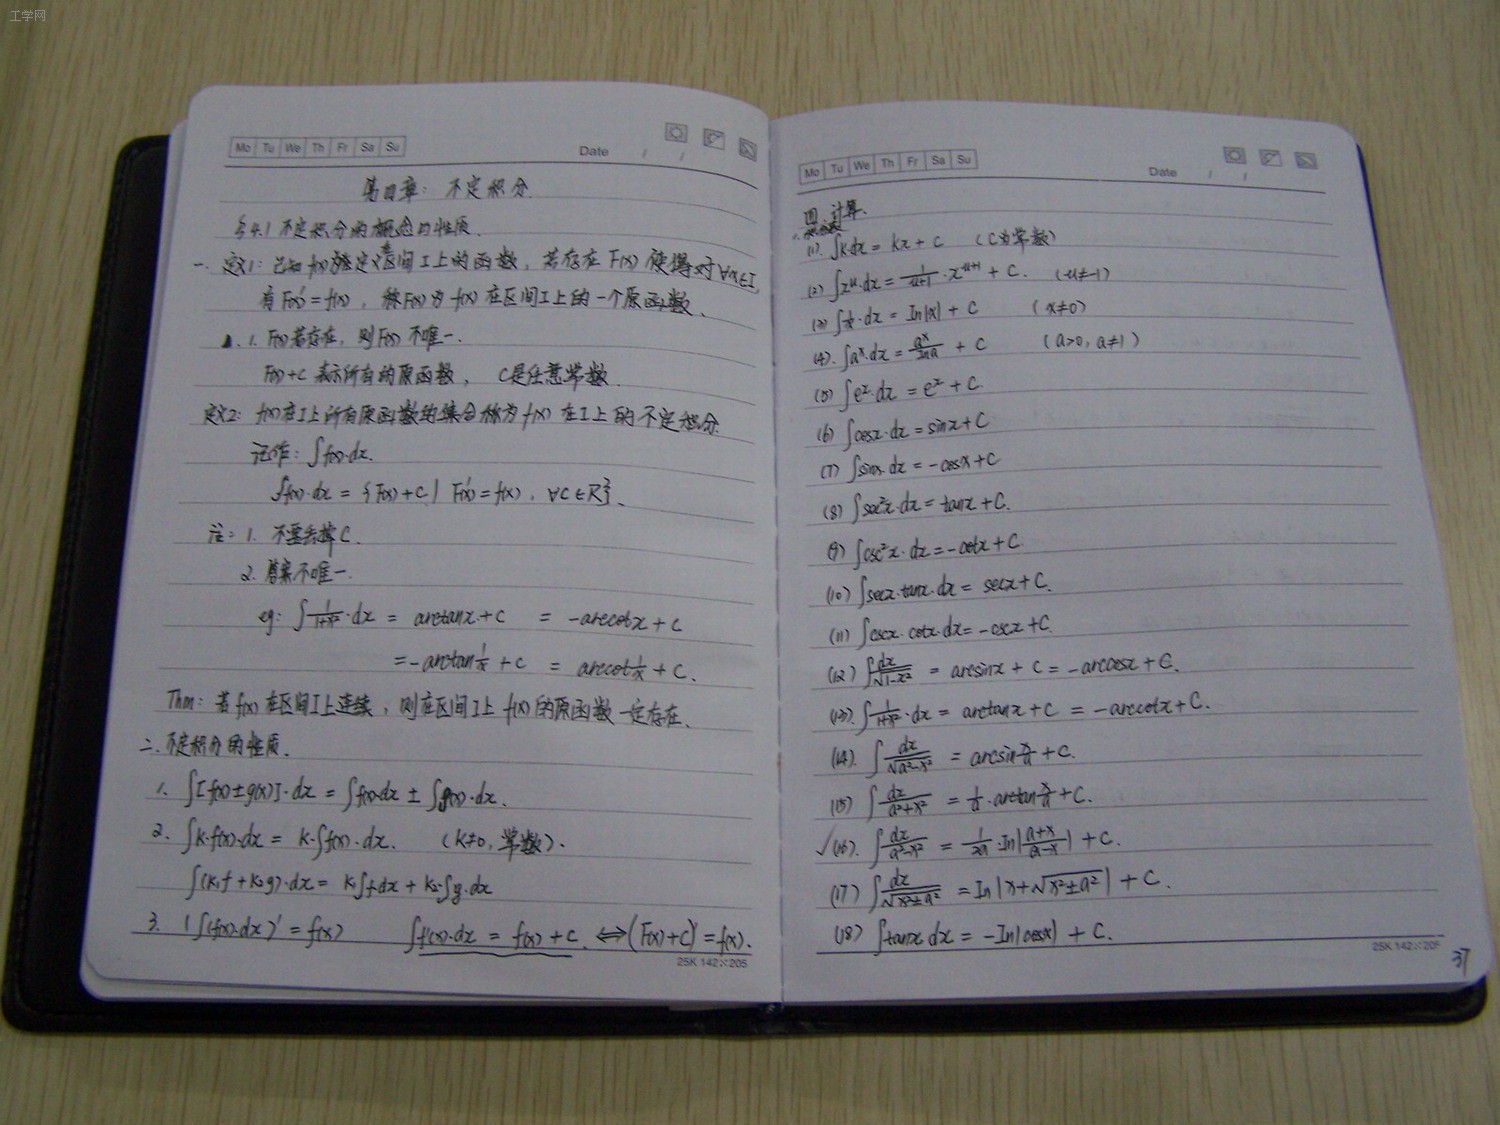 工学网
Mo Tu We Th Fr Sa Su Date / /
第四章: 不定积分.
§4.1 不定积分的概念与性质.
一. 定义1: 已知f(x)是定义在区间I上的函数, 若存在F(x)使得对∀x∈I,
有F(x)'=f(x), 称F(x)为f(x)在区间I上的一个原函数.
1. F(x)若存在, 则F(x)不唯一.
F(x)+C表示所有的原函数, C是任意常数.
定义2: f(x)在I上所有原函数的集合称为f(x)在I上的不定积分.
记作: ∫f(x)·dx.
∫f(x)·dx = {F(x)+C | F(x)'=f(x), ∀C∈R}.
注: 1. 不要丢掉C.
2. 答案不唯一.
eg: ∫1/(1+x²)·dx = arctanx+C = -arccotx+C
=-arctan1/x+C = arccot1/x+C.
Thm: 若f(x)在区间I上连续, 则在区间I上f(x)的原函数一定存在.
二. 不定积分的性质.
1. ∫[f(x)±g(x)]·dx = ∫f(x)·dx ± ∫g(x)·dx.
2. ∫k·f(x)·dx = k·∫f(x)·dx. (k≠0, 常数).
∫(k₁f+k₂g)·dx = k₁∫f·dx + k₂·∫g·dx
3. (∫f(x)·dx)' = f(x) ∫f'(x)·dx = f(x)+C. ⇔(F(x)+C)'=f(x).
25K 142×205
Mo Tu We Th Fr Sa Su Date / /
四. 计算.
(1). ∫kdx = kx+C (C为常数)
(2) ∫x^u·dx = 1/(u+1)·x^(u+1)+C. (u≠-1)
(3) ∫1/x·dx = ln|x|+C (x≠0)
(4). ∫a^x·dx = a^x/lna + C (a>0, a≠1)
(5) ∫e^x·dx = e^x+C
(6) ∫cosx·dx = sinx+C
(7) ∫sinx·dx = -cosx+C
(8) ∫sec²x·dx = tanx+C.
(9) ∫csc²x·dx = -cotx+C.
(10) ∫secx·tanx·dx = secx+C.
(11) ∫cscx·cotx·dx = -cscx+C.
(12) ∫dx/√(1-x²) = arcsinx+C = -arccosx+C.
(13) ∫1/(1+x²)·dx = arctanx+C = -arccotx+C.
(14). ∫dx/√(a²-x²) = arcsin x/a + C.
(15) ∫dx/(a²+x²) = 1/a·arctan x/a + C.
✓(16). ∫dx/(a²-x²) = 1/2a·ln|(a+x)/(a-x)| + C.
(17) ∫dx/√(x²±a²) = ln|x+√(x²±a²)| + C.
(18) ∫tanx dx = -ln|cosx| + C.
25K 142×205
37